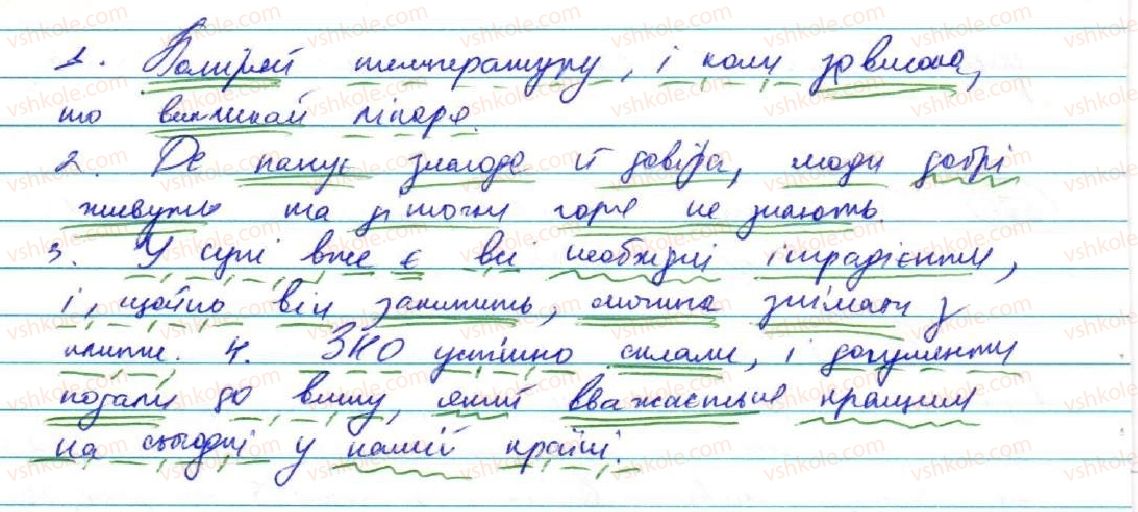 1. Поміряй температуру, і колы зависока,
то викликай лікаря.
2. Де панує злагода й довіра, люди добрі
живуть та діточки горя не знають.
3. У супі вже є всі необхідні інградієнти,
і, щойно він закипить, можна знімати з
плити. 4. ЗНО успішно склали, і документи
подали до вишу, який вважається кращим
на сьогодні у нашій країні.